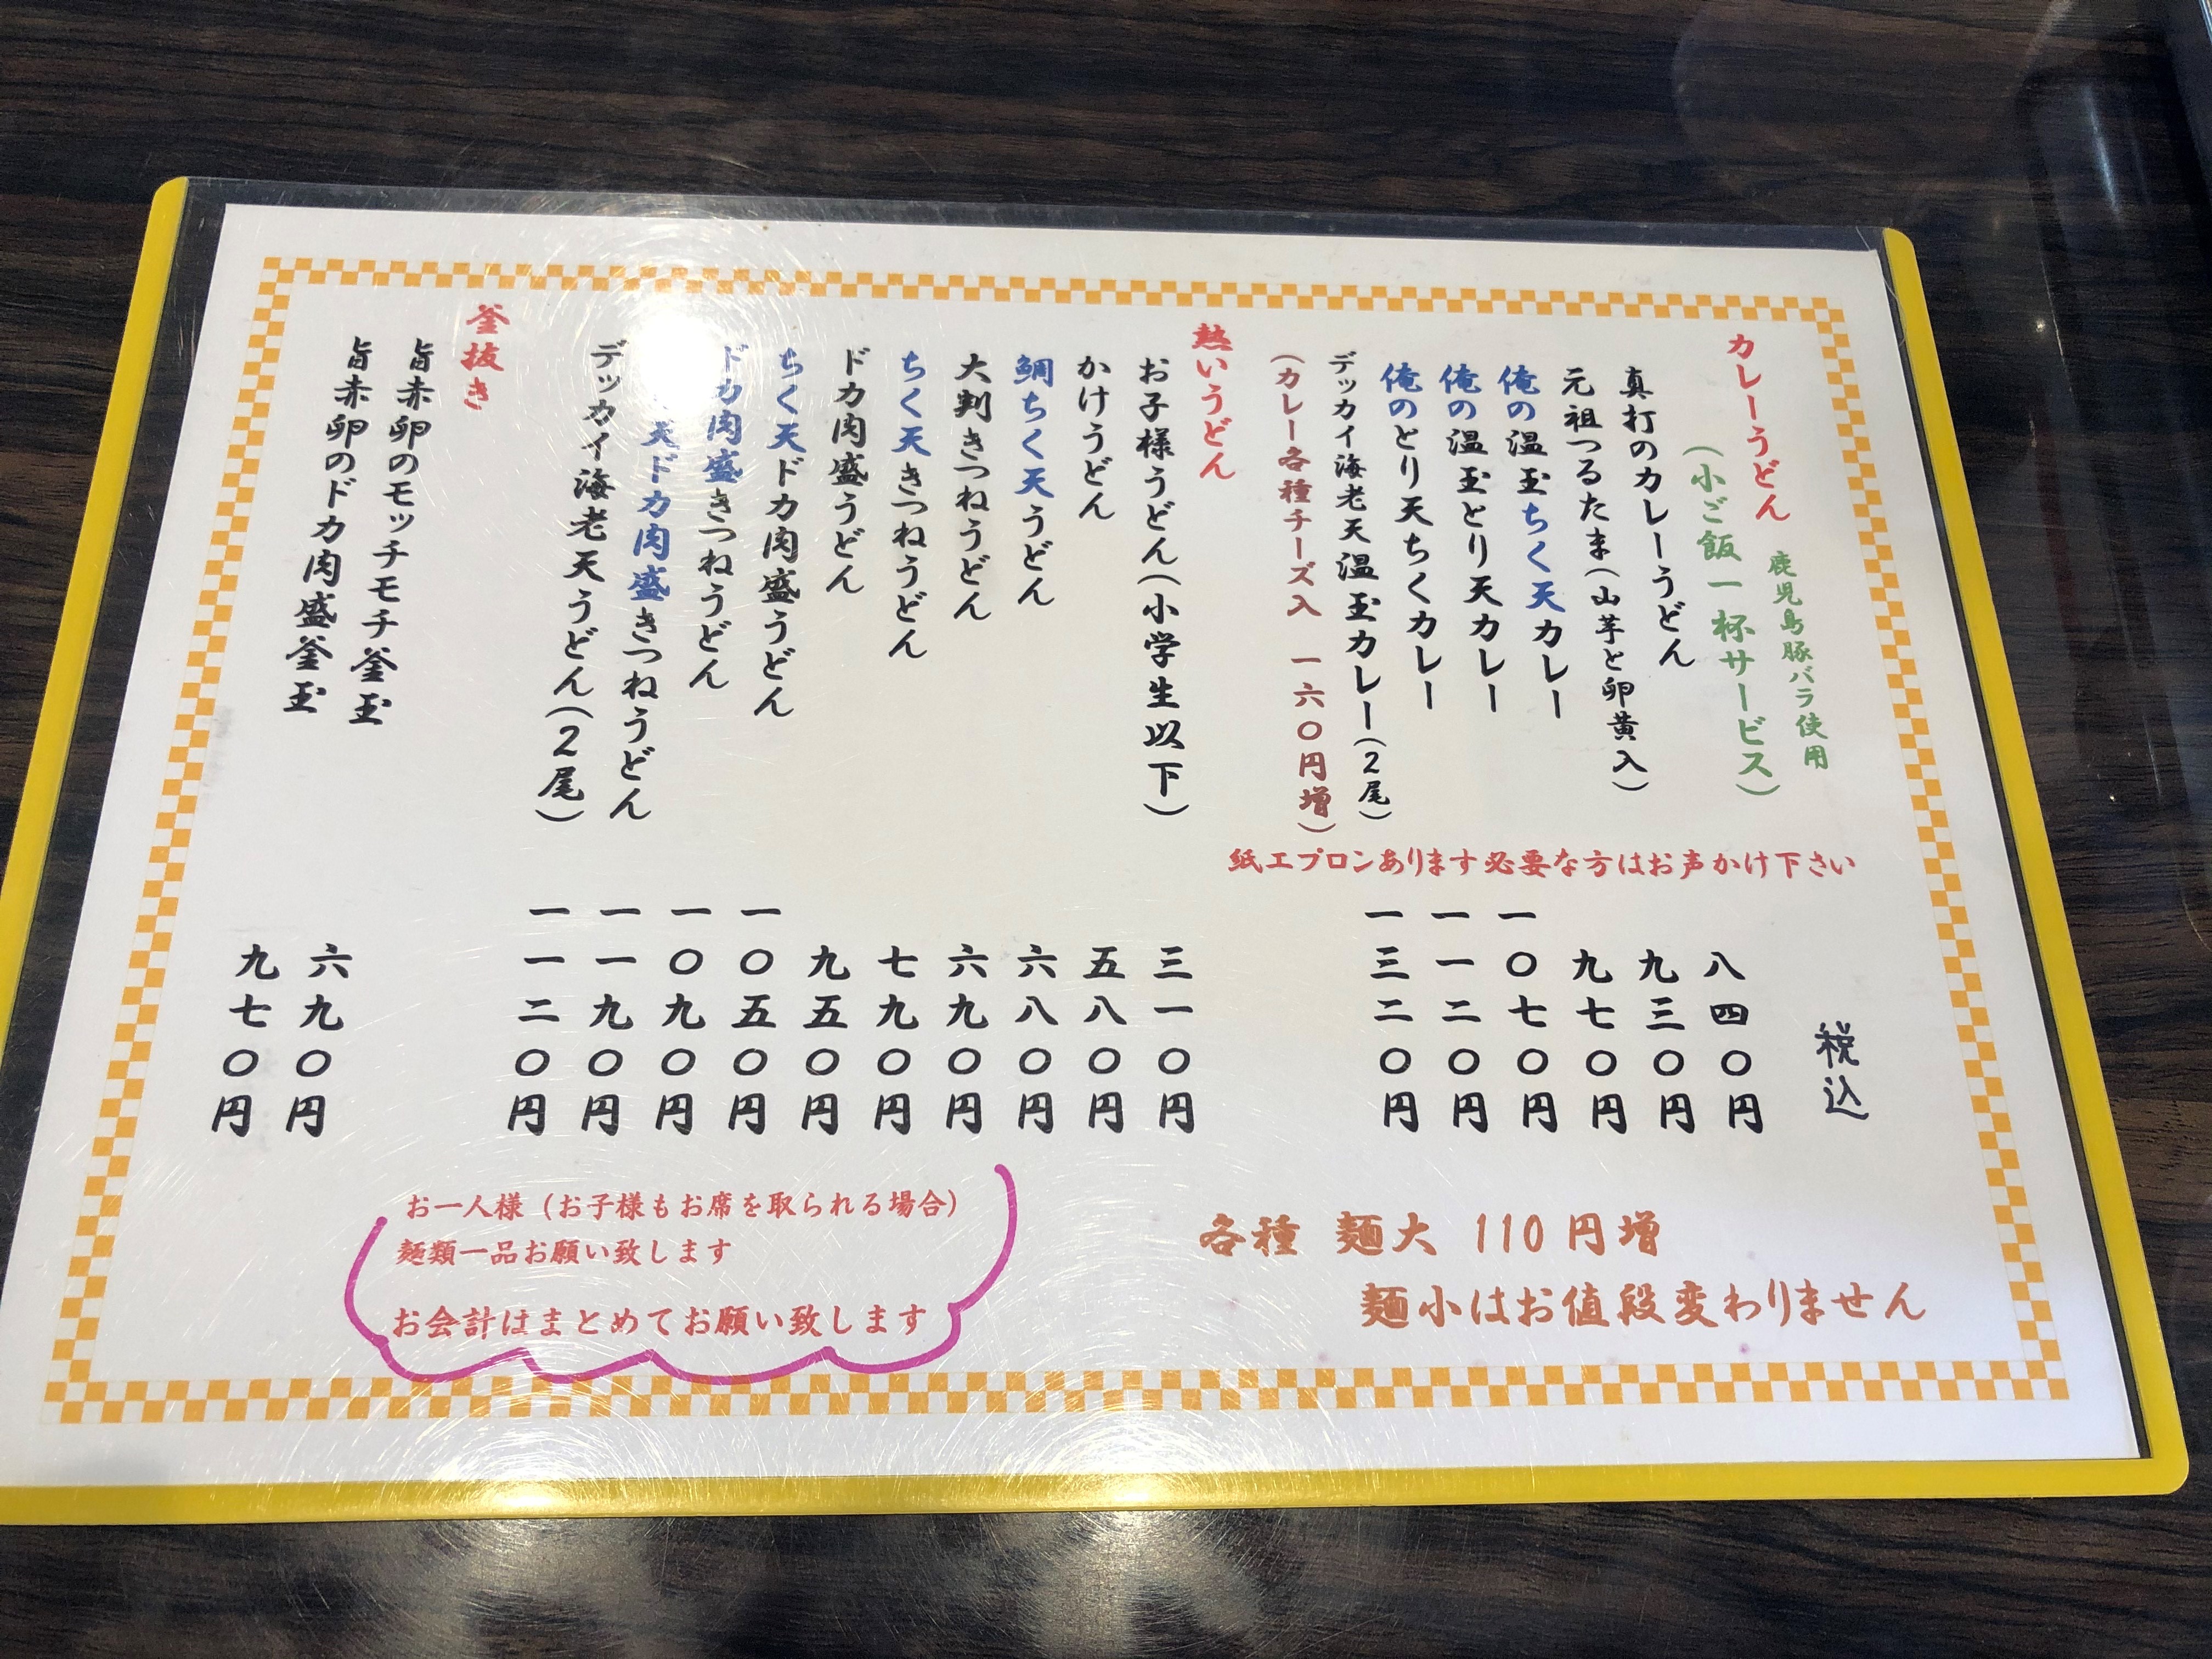 カレーうどん 鹿児島豚バラ使用
(小ご飯一杯サービス)
税込
真打のカレーうどん 八四〇円
元祖つるたま(山芋と卵黄入) 九三〇円
俺の温玉ちく天カレー 九七〇円
俺の温玉とり天カレー 一〇七〇円
俺のとり天ちくカレー 一一二〇円
デッカイ海老天温玉カレー(2尾) 一三二〇円
(カレー各種チーズ入 一六〇円増)
紙エプロンあります必要な方はお声かけ下さい
熱いうどん
お子様うどん(小学生以下) 三一〇円
かけうどん 五八〇円
鯛ちく天うどん 六八〇円
大判きつねうどん 六九〇円
ちく天きつねうどん 七九〇円
ドカ肉盛うどん 九五〇円
ちく天ドカ肉盛うどん 一〇五〇円
ドカ肉盛きつねうどん 一〇九〇円
天ドカ肉盛きつねうどん 一一九〇円
デッカイ海老天うどん(2尾) 一一二〇円
釜抜き
旨赤卵のモッチモチ釜玉 六九〇円
旨赤卵のドカ肉盛釜玉 九七〇円
各種 麺大 110円増
麺小はお値段変わりません
お一人様(お子様もお席を取られる場合)
麺類一品お願い致します
お会計はまとめてお願い致します